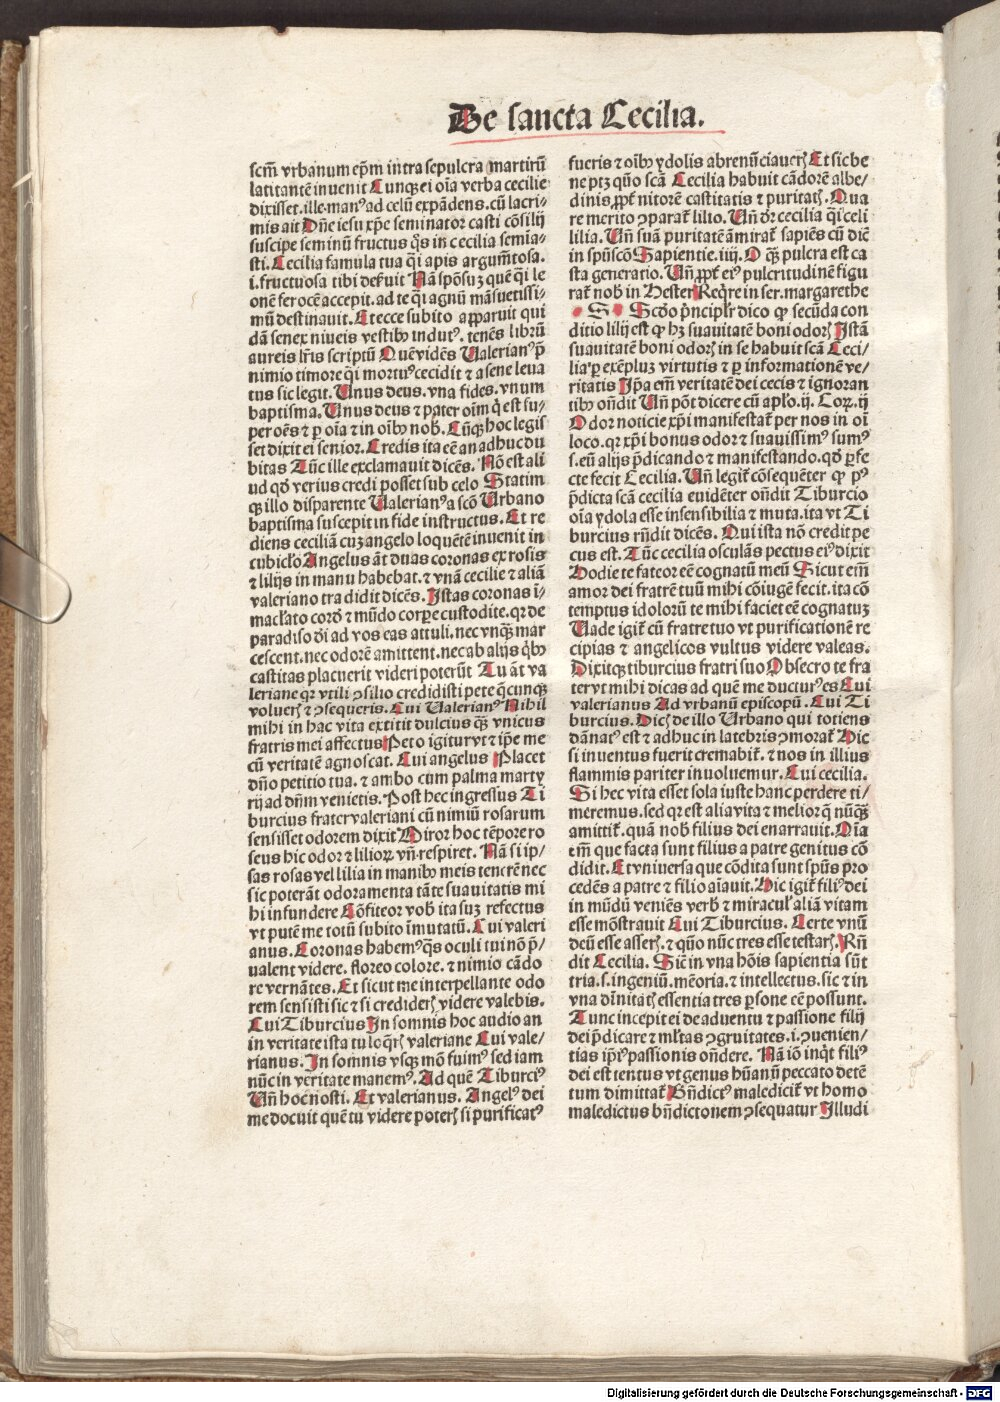 De sancta Cecilia.
scm̄ vrbanum ep̄m intra sepulcra martirū
latitantē inuenit Cunqꝫ ei oīa verba cecilie
dixisset. ille manꝰ ad celū expādens. cū lacri-
mis ait Dn̄e iesu xp̄e seminator casti cōsilij
suscipe seminū fructus q̄s in cecilia semīa-
sti. Cecilia famula tua q̄i apis argumētosa.
i. fructuosa tibi deseruit Nā spōsuꝫ quē q̄i le
onē ferocē accepit. ad te q̄i agnū māsuetissi-
mū destinauit. Et ecce subito apparuit qui
dā senex niueis vestibꝰ indutꝰ. tenēs librū
aureis lr̄is scriptū Quē vidēs Ualerianꝰ p̄
nimio timore q̄i mortuꝰ cecidit ⁊ a sene leua
tus sic legit. Unus deus. vna fides. vnum
baptisma. Unus deus ⁊ pater oīm q̄ est su-
per oēs ⁊ ꝑ oīa ⁊ in oībꝰ nob̄. Cūqꝫ hoc legis
set dixit ei senior. Credis ita eē an adhuc du
bitas Tūc ille exclamauit dicēs. Nō est ali
ud qd̄ verius credi posset sub celo Statim
qꝫ illo disparente Ualerianꝰ a scō Urbano
baptisma suscepit in fide instructus. Et re
diens ceciliā cuꝫ angelo loquētē inuenit in
cubicl̄o Angelus āt duas coronas ex rosis
⁊ lilijs in manu habebat. ⁊ vnā cecilie ⁊ aliā
valeriano tradidit dicēs. Istas coronas ī-
macl̄ato cord̄ ⁊ mūdo corpe custodite. qꝛ de
paradiso d̄i ad vos eas attuli. nec vnqꝫ mar
cescent. nec odorē amittent. nec ab alijs q̄bꝰ
castitas placuerit videri poterūt Tu āt va
leriane qꝛ vtili ꝯsilio credidisti pete q̄cunqꝫ
volueꝝ ⁊ ꝯsequeris. Cui Ualerianꝰ Nihil
mihi in hac vita extitit dulcius qꝫ̄ vnicus
fratris mei affectus Peto igitur vt ⁊ ip̄e me
cū veritatē agnoscat. Cui angelus Placet
dn̄o petitio tua. ⁊ ambo cum palma marty
rij ad dn̄m venietis. Post hec ingressus Ti
burcius frater valeriani cū nimiū rosarum
sensisset odorem dixit Miror hoc tēpore ro
seus hic odor ⁊ lilioꝝ vn̄ respiret. Nā si ip/
sas rosas vel lilia in manibꝰ meis tenerē nec
sic poterāt odoramenta tāte suauitatis mi
hi infundere Cōfiteor vob̄ ita suꝫ refectus
vt putē me totū subito īmutatū. Cui valeri
anus. Coronas habemꝰ q̄s oculi tui nō p̄/
ualent videre. floreo colore. ⁊ nimio cādo
re vernātes. Et sicut me interpellante odo
rem sensisti sic ⁊ si credideꝝ videre valebis.
Cui Tiburcius In somnis hoc audio an
in veritate ista tu loq̄ꝝ valeriane Cui vale/
rianus. In somnis vsqꝫ mō fuimꝰ sed iam
nūc in veritate manemꝰ. Ad quē Tiburciꝰ
Un̄ hoc nosti. Et valerianus. Angelꝰ dei
me docuit quē tu videre poteꝝ si purificatꝰ
fueris ⁊ oībꝰ ydolis abrenūciaueꝝ Et sic be
ne ptꝫ quō scā Cecilia habuit cādorē albe/
dinis. ꝓpt̄ nitorē castitatis ⁊ puritatꝭ. Qua
re merito ꝯparat̄ lilio. Un̄ dr̄ cecilia q̄i celi
lilia. Un̄ suā puritatē āmirat̄ sapiēs cū diē
in spūscō Sapientie. iiij. O qꝫ̄ pulcra est ca
sta generatio. Un̄ ꝓpt̄ eiꝰ pulcritudinē figu
rat̄ nob̄ in Hester Reqꝛe in ser. margarethe
S Scd̄o p̄ncipl̄r dico qꝙ secūda con
ditio lilij est qꝙ hꝫ suauitatē boni odorꝭ Istā
suauitatē boni odorꝭ in se habuit scā Ceci/
lia ꝑ exēpluꝫ virtutis ⁊ ꝑ informationē ve/
ritatis Ip̄a em̄ veritatē dei cecis ⁊ ignoran
tibꝰ on̄dit Un̄ pōt dicere cū apl̄o. ij. Coꝝ. ij
Odor noticie xp̄i manifestat̄ per nos in oī
loco. qꝛ xp̄i bonus odor ⁊ suauissimꝰ sumꝰ
s. eū alijs p̄dicando ⁊ manifestando. qd̄ ꝑfe
cte fecit Cecilia. Un̄ legit̄ cōsequēter qꝙ pꝰ
p̄dicta scā cecilia euidēter on̄dit Tiburcio
oīa ydola esse insensibilia ⁊ muta. ita vt Ti
burcius rn̄dit dicēs. Qui ista nō credit pe
cus est. Tūc cecilia osculās pectus eiꝰ dixit
Hodie te fateor eē cognatū meū Sicut em̄
amor dei fratrē tuū mihi cōiugē fecit. ita cō
temptus idolorū te mihi faciet eē cognatuꝫ
Uade igit̄ cū fratre tuo vt purificationē re
cipias ⁊ angelicos vultus videre valeas.
Dixitqꝫ tiburcius fratri suo Obsecro te fra
ter vt mihi dicas ad quē me ducturꝰ es Cui
valerianus Ad vrbanū episcopū. Cui Ti
burcius. Dicꝭ de illo Urbano qui totiens
dānatꝰ est ⁊ adhuc in latebris ꝯmorat̄ Hic
si inuentus fuerit cremabit̄. ⁊ nos in illius
flammis pariter inuoluemur. Cui cecilia.
Si hec vita esset sola iuste hanc perdere ti/
meremus. sed qꝛ est alia vita ⁊ melior q̄ nūqꝫ
amittit̄. quā nob̄ filius dei enarrauit. Oīa
em̄ que facta sunt filius a patre genitus cō
didit. Et vniuersa que cōdita sunt spūs pro
cedēs a patre ⁊ filio aīauit. Hic igit̄ filiꝰ dei
in mūdū veniēs verbꝭ ⁊ miraculꝭ aliā vitam
esse mōstrauit Cui Tiburcius. Certe vnū
deū esse asseꝝ. ⁊ quō nūc tres esse testaꝝ. Rn̄
dit Cecilia. Sic̄ in vna hōis sapientia sūt
tria. s. ingeniū. mēoria. ⁊ intellectus. sic ⁊ in
vna dīnitatꝭ essentia tres ꝑsone eē possunt.
Tunc incepit ei de aduentu ⁊ passione filij
dei p̄dicare ⁊ ml̄tas ꝯgruitates. i. ꝯuenien/
tias ip̄iꝰ passionis on̄dere. Nā iō inq̄t filiꝰ
dei est tentus vt genus hūanū peccato detē
tum dimittat̄ Bn̄dictꝰ maledicit̄ vt homo
maledictus bn̄dictonem ꝯsequatur Illudi
Digitalisierung gefördert durch die Deutsche Forschungsgemeinschaft - DFG